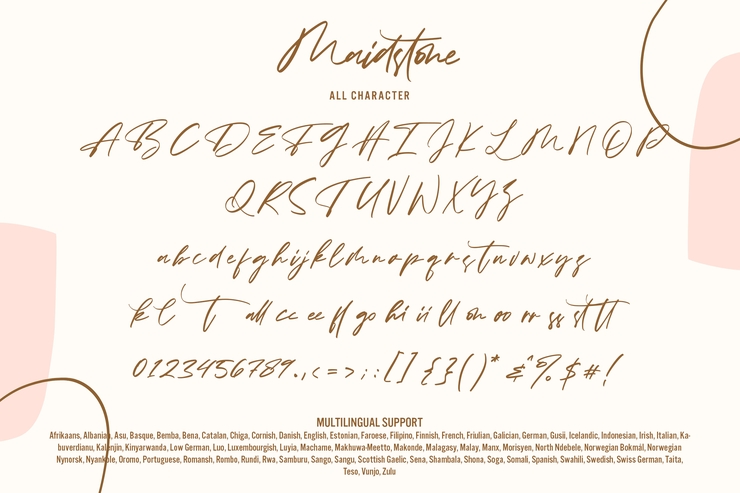 Maidstone
ALL CHARACTER
A B C D E F G H I J K L M N O P
Q R S T U V W X Y Z
a b c d e f g h i j k l m n o p q r s t u v w x y z
k l t all cc ee fl go hi ii ll on oo rr ss st tt
0 1 2 3 4 5 6 7 8 9 . , < = > ; : [ ] { } ( ) * & ^ % $ # !
MULTILINGUAL SUPPORT
Afrikaans, Albanian, Asu, Basque, Bemba, Bena, Catalan, Chiga, Cornish, Danish, English, Estonian, Faroese, Filipino, Finnish, French, Friulian, Galician, German, Gusii, Icelandic, Indonesian, Irish, Italian, Ka-
buverdianu, Kalenjin, Kinyarwanda, Low German, Luo, Luxembourgish, Luyia, Machame, Makhuwa-Meetto, Makonde, Malagasy, Malay, Manx, Morisyen, North Ndebele, Norwegian Bokmål, Norwegian
Nynorsk, Nyankole, Oromo, Portuguese, Romansh, Rombo, Rundi, Rwa, Samburu, Sango, Sangu, Scottish Gaelic, Sena, Shambala, Shona, Soga, Somali, Spanish, Swahili, Swedish, Swiss German, Taita,
Teso, Vunjo, Zulu